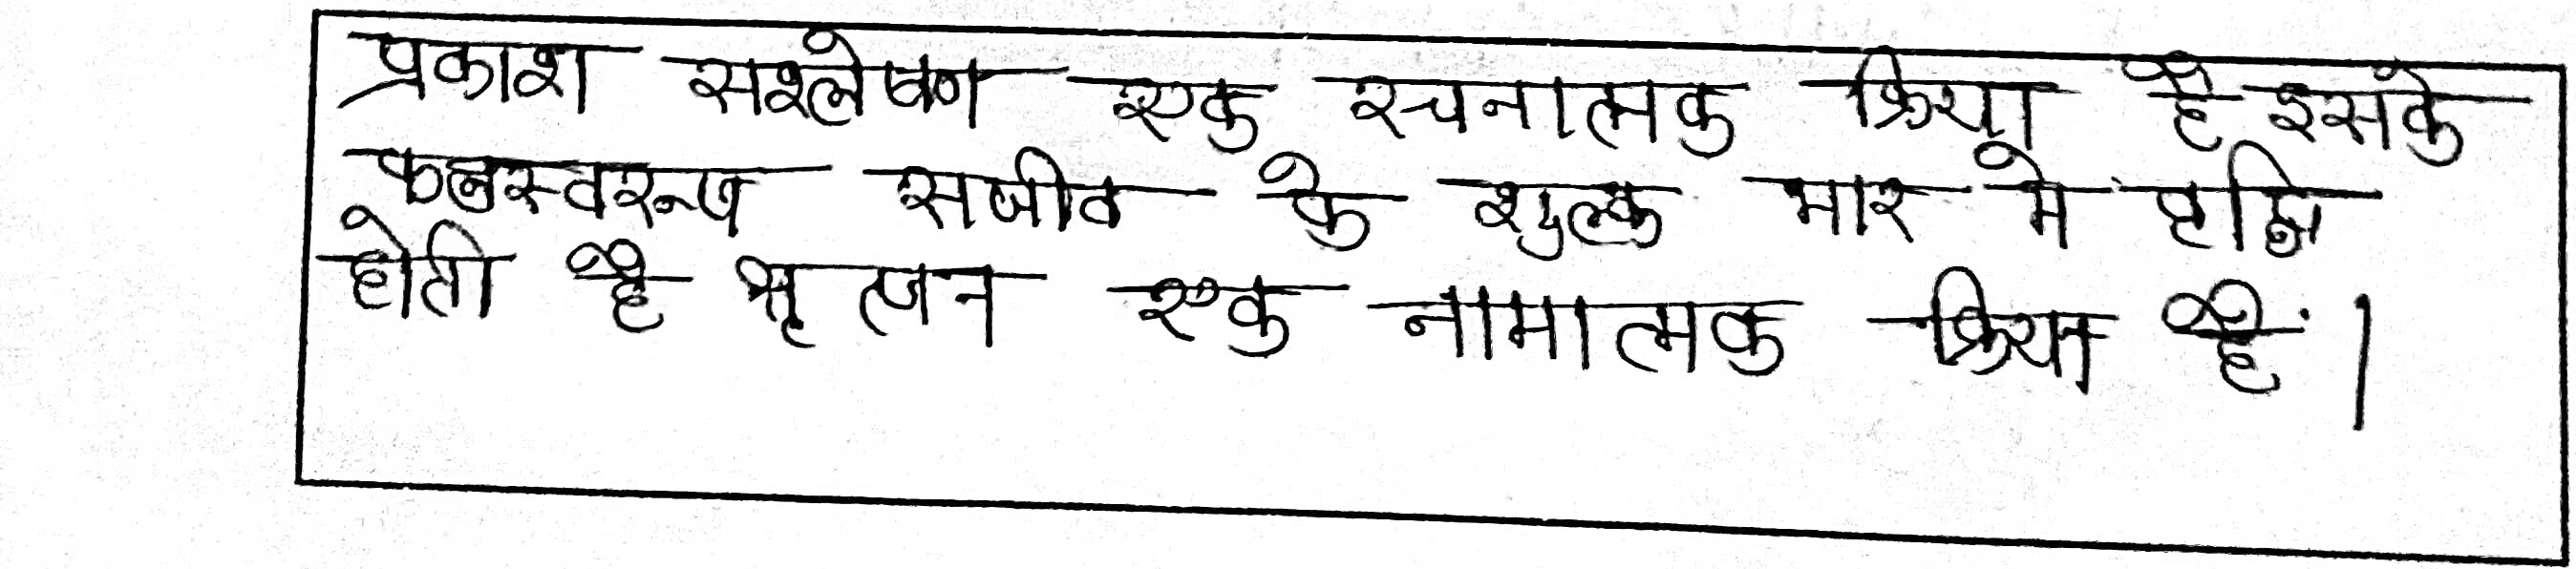 प्रकाश सश्लेषण एक रचनात्मक क्रिया है इसके
फलस्वरूप सजीव के शुल्क भार मे वृद्धि
होती है भृत्जन एक नामात्मक क्रिया है।